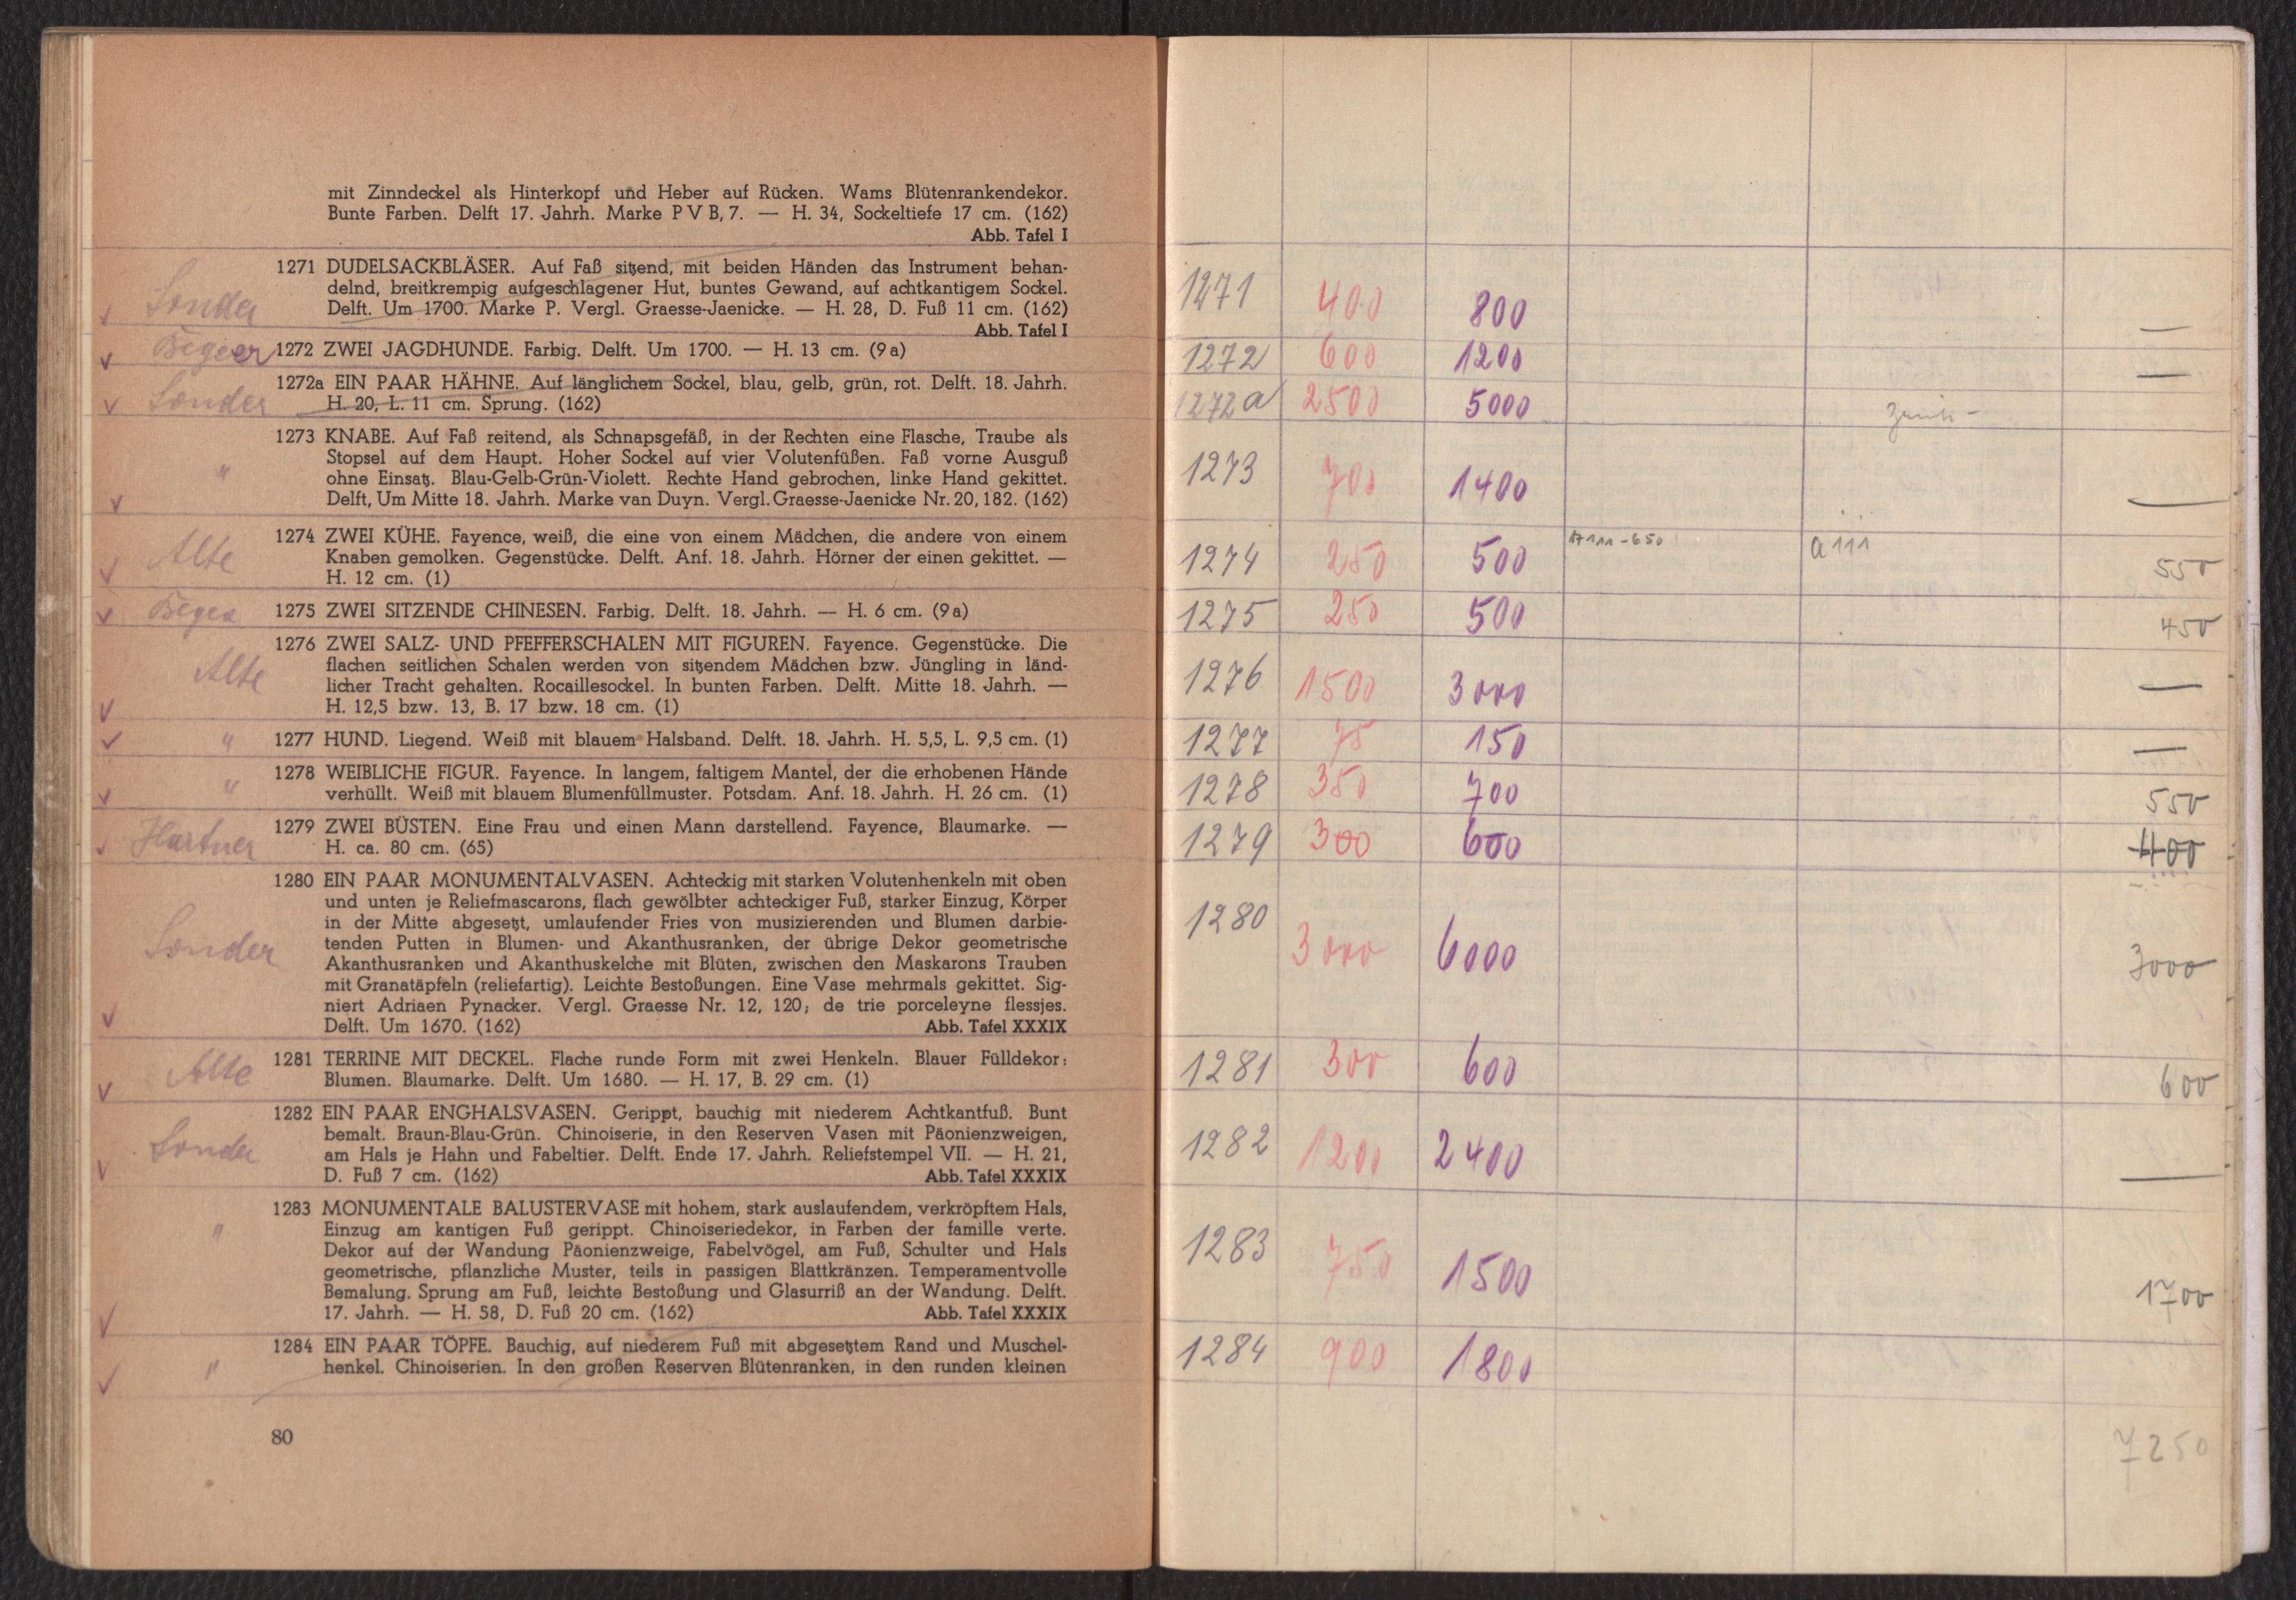 mit Zinndeckel als Hinterkopf und Heber auf Rücken. Wams Blütenrankendekor.
Bunte Farben. Delft 17. Jahrh. Marke P V B, 7. — H. 34, Sockeltiefe 17 cm. (162)
Abb. Tafel I
Sonder
1271 DUDELSACKBLÄSER. Auf Faß sitzend, mit beiden Händen das Instrument behan-
delnd, breitkrempig aufgeschlagener Hut, buntes Gewand, auf achtkantigem Sockel.
Delft. Um 1700. Marke P. Vergl. Graesse-Jaenicke. — H. 28, D. Fuß 11 cm. (162)
Abb. Tafel I
1272 ZWEI JAGDHUNDE. Farbig. Delft. Um 1700. — H. 13 cm. (9a)
Sonder
1272a EIN PAAR HÄHNE. Auf länglichem Sockel, blau, gelb, grün, rot. Delft. 18. Jahrh.
H. 20, L. 11 cm. Sprung. (162)
"
1273 KNABE. Auf Faß reitend, als Schnapsgefäß, in der Rechten eine Flasche, Traube als
Stopsel auf dem Haupt. Hoher Sockel auf vier Volutenfüßen. Faß vorne Ausguß
ohne Einsatz. Blau-Gelb-Grün-Violett. Rechte Hand gebrochen, linke Hand gekittet.
Delft, Um Mitte 18. Jahrh. Marke van Duyn. Vergl. Graesse-Jaenicke Nr. 20, 182. (162)
Alte
1274 ZWEI KÜHE. Fayence, weiß, die eine von einem Mädchen, die andere von einem
Knaben gemolken. Gegenstücke. Delft. Anf. 18. Jahrh. Hörner der einen gekittet. —
H. 12 cm. (1)
1275 ZWEI SITZENDE CHINESEN. Farbig. Delft. 18. Jahrh. — H. 6 cm. (9a)
Alte
1276 ZWEI SALZ- UND PFEFFERSCHALEN MIT FIGUREN. Fayence. Gegenstücke. Die
flachen seitlichen Schalen werden von sitzendem Mädchen bzw. Jüngling in länd-
licher Tracht gehalten. Rocaillesockel. In bunten Farben. Delft. Mitte 18. Jahrh. —
H. 12,5 bzw. 13, B. 17 bzw. 18 cm. (1)
" 1277 HUND. Liegend. Weiß mit blauem Halsband. Delft. 18. Jahrh. H. 5,5, L. 9,5 cm. (1)
" 1278 WEIBLICHE FIGUR. Fayence. In langem, faltigem Mantel, der die erhobenen Hände
verhüllt. Weiß mit blauem Blumenfüllmuster. Potsdam. Anf. 18. Jahrh. H. 26 cm. (1)
Hartner
1279 ZWEI BÜSTEN. Eine Frau und einen Mann darstellend. Fayence, Blaumarke. —
H. ca. 80 cm. (65)
Sonder
1280 EIN PAAR MONUMENTALVASEN. Achteckig mit starken Volutenhenkeln mit oben
und unten je Reliefmascarons, flach gewölbter achteckiger Fuß, starker Einzug, Körper
in der Mitte abgesetzt, umlaufender Fries von musizierenden und Blumen darbie-
tenden Putten in Blumen- und Akanthusranken, der übrige Dekor geometrische
Akanthusranken und Akanthuskelche mit Blüten, zwischen den Maskarons Trauben
mit Granatäpfeln (reliefartig). Leichte Bestoßungen. Eine Vase mehrmals gekittet. Sig-
niert Adriaen Pynacker. Vergl. Graesse Nr. 12, 120; de trie porceleyne flessjes.
Delft. Um 1670. (162) Abb. Tafel XXXIX
Alte
1281 TERRINE MIT DECKEL. Flache runde Form mit zwei Henkeln. Blauer Fülldekor:
Blumen. Blaumarke. Delft. Um 1680. — H. 17, B. 29 cm. (1)
Sonder
1282 EIN PAAR ENGHALSVASEN. Gerippt, bauchig mit niederem Achtkantfuß. Bunt
bemalt. Braun-Blau-Grün. Chinoiserie, in den Reserven Vasen mit Päonienzweigen,
am Hals je Hahn und Fabeltier. Delft. Ende 17. Jahrh. Reliefstempel VII. — H. 21,
D. Fuß 7 cm. (162) Abb. Tafel XXXIX
"
1283 MONUMENTALE BALUSTERVASE mit hohem, stark auslaufendem, verkröpftem Hals,
Einzug am kantigen Fuß gerippt. Chinoiseriedekor, in Farben der famille verte.
Dekor auf der Wandung Päonienzweige, Fabelvögel, am Fuß, Schulter und Hals
geometrische, pflanzliche Muster, teils in passigen Blattkränzen. Temperamentvolle
Bemalung. Sprung am Fuß, leichte Bestoßung und Glasurriß an der Wandung. Delft.
17. Jahrh. — H. 58, D. Fuß 20 cm. (162) Abb. Tafel XXXIX
"
1284 EIN PAAR TÖPFE. Bauchig, auf niederem Fuß mit abgesetztem Rand und Muschel-
henkel. Chinoiserien. In den großen Reserven Blütenranken, in den runden kleinen
80
1271 400 800 —
1272 600 1200 —
1272a 2500 5000
1273 700 1400 —
1274 250 500 a 111 550
1275 250 500 450
1276 1500 3000 —
1277 75 150 —
1278 350 700 550
1279 300 600 400
1280 3000 6000 3000
1281 300 600 600
1282 1200 2400 —
1283 750 1500 1700
1284 900 1800
7250